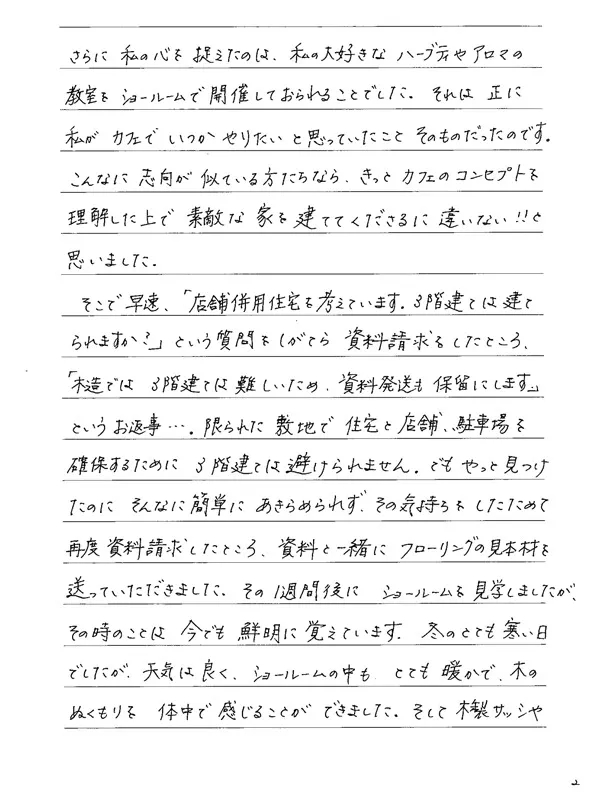 さらに 私の心を 捉えたのは、私の大好きな ハーブティやアロマの
教室を ショールームで 開催しておられることでした。それは 正に
私が カフェで いつか やりたい と思っていたこと そのものだったのです。
こんなに 志向が 似ている方たちなら、きっと カフェのコンセプトを
理解した上で 素敵な 家を 建ててくださるに 違いない!!と
思いました。
そこで早速、「店舗併用住宅を考えています。3階建ては建て
られますか?」という質問をしがてら 資料請求をしたところ、
「木造では 3階建ては難しいため、資料発送も 保留にします。」
というお返事…。限られた 敷地で 住宅と店舗、駐車場を
確保するために 3階建ては避けられません。でも やっと見つけ
たのに そんなに簡単に あきらめられず、その気持ちを したためて
再度 資料請求したところ、資料と一緒に フローリングの見本材を
送っていただきました。その1週間後に ショールームを見学しましたが、
その時のことは 今でも 鮮明に覚えています。冬のとても寒い日
でしたが、天気は良く、ショールームの中も とても 暖かで、木の
ぬくもりを 体中で 感じることが できました。そして 木製サッシや
2